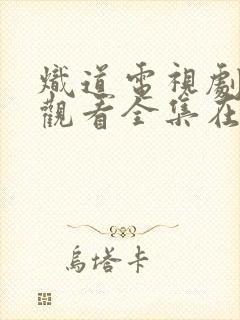 熾道電視劇
觀看全集在
烏塔卡